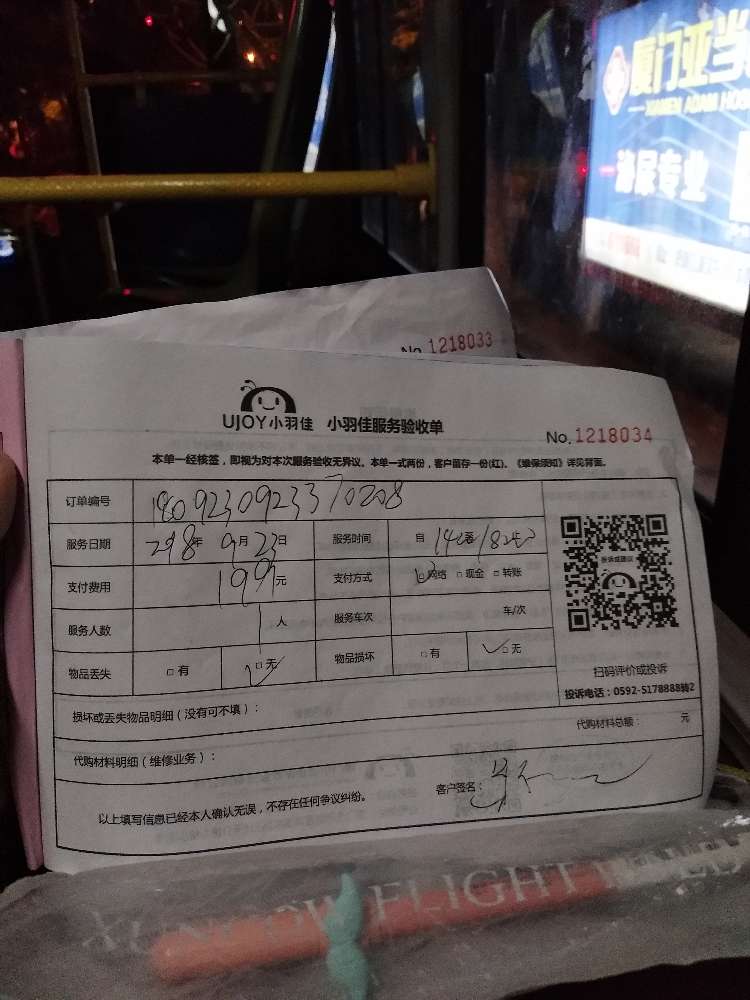 厦门亚当
XIAMEN ADAM HO
泌尿专业
No. 1218033
UJOY小羽佳 小羽佳服务验收单
No. 1218034
本单一经核签，即视为对本次服务验收无异议。本单一式两份，客户留存一份(红)。《维保须知》详见背面。
订单编号 1809230923370208
服务日期 2918年 9月23日 服务时间 自
支付费用 199元 支付方式 □网络 □现金 □转账
服务人数 1人 服务车次 车/次
物品丢失 □有 □无 物品损坏 □有 □无
扫码评价或投诉
投诉电话：0592-5178888转2
损坏或丢失物品明细（没有可不填）：
代购材料总额： 元
代购材料明细（维修业务）：
以上填写信息已经本人确认无误，不存在任何争议纠纷。
客户签名：
FLIGHT